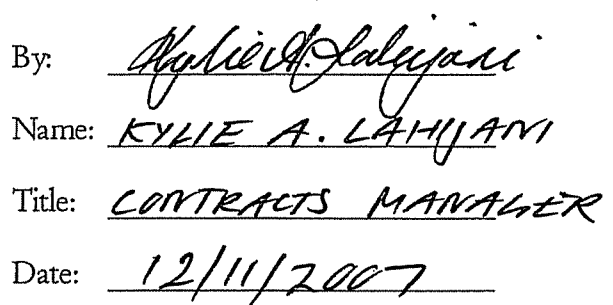 By: Kylie A. Lahijani
Name: KYLIE A. LAHIJANI
Title: CONTRACTS MANAGER
Date: 12/11/2007